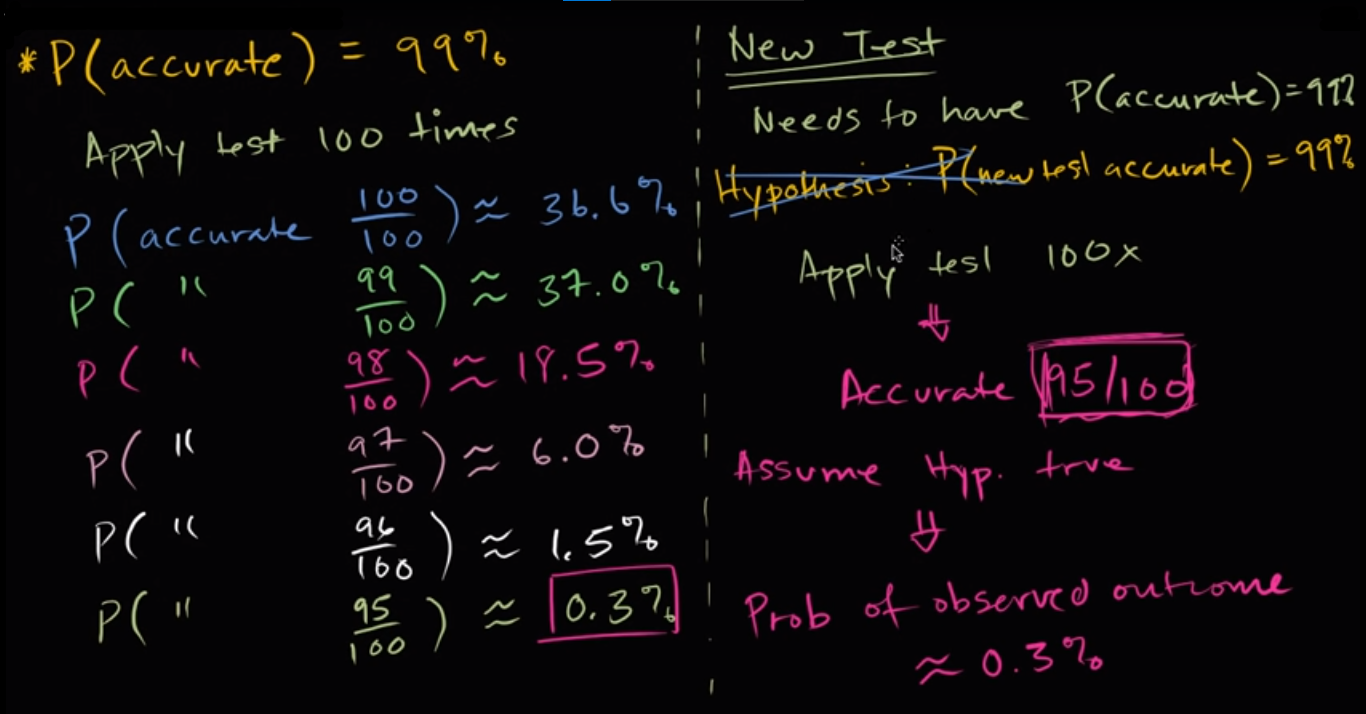 *P(accurate) = 99%
Apply test 100 times
P(accurate 100/100) ≈ 36.6%
P( " 99/100) ≈ 37.0%
P( " 98/100) ≈ 18.5%
P( " 97/100) ≈ 6.0%
P( " 96/100) ≈ 1.5%
P( " 95/100) ≈ 0.3%
New Test
Needs to have P(accurate)=99%
Hypothesis: P(new test accurate) = 99%
Apply test 100x
⇓
Accurate 95/100
Assume Hyp. true
⇓
Prob of observed outcome
≈ 0.3%